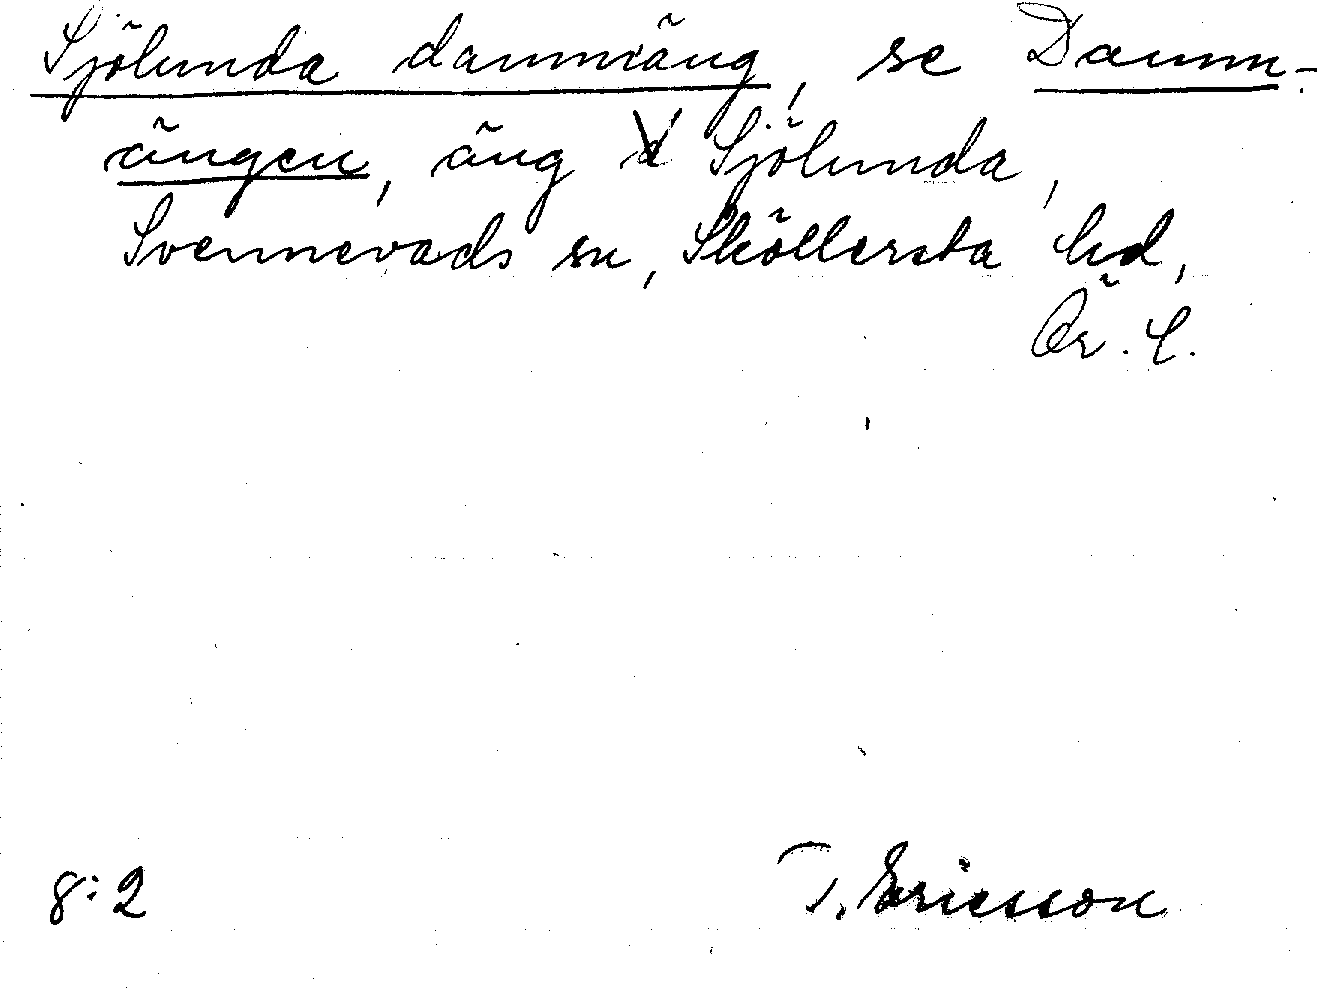 Sjölunda dammäng, se Damm-
ängen, äng å Sjölunda,
Svennevads sn, Sköllersta hd,
Ör. l.
8:2 T. Ericsson